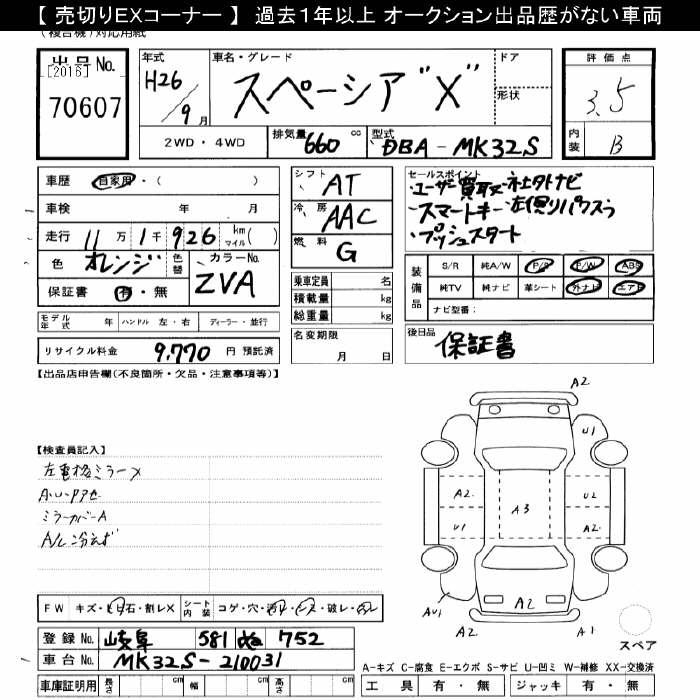 【 売切りEXコーナー 】 過去1年以上 オークション出品歴がない車両
(複合機)対応用紙
出品No. [2016] 70607
年式 H26/9月
車名・グレード スペーシア"X"
ドア 形状
評価点 3.5
内装 B
2WD・4WD 排気量 660 cc 型式 DBA-MK32S
車歴 自家用・( )
車検 年 月
走行 11万1千926 km マイル( )
色 オレンジ 色替 カラーNo. ZVA
保証書 有・無
モデル年式 年 ハンドル 左・右 ディーラー・並行
リサイクル料金 9,770 円 預託済
シフト AT
冷房 AAC
燃料 G
乗車定員 名
積載量 kg
総重量 kg
名変期限 月 日
セールスポイント
・ユーザー買取又社外ナビ
・スマートキー・左側リパスラ
・プッシュスタート
装備品 S/R 純A/W P/S P/W ABS
純TV 純ナビ 革シート 外ナビ エアB
ナビ型番:
後日品 保証書
【出品店申告欄(不良箇所・欠品・注意事項等)】
【検査員記入】
左電格ミラーX
A・U・Pアセ
ミラーカバーA
A/C冷えず
A2
U1
A2 U2
A3
U1 A2
A2
AU1
A2 A1
スペア
FW キズ・ヒ石・割レX シート内装 コゲ・穴・
破レ・
登録No. 岐阜 581 ぬ 752
車台No. MK32S-210031
車庫証明用 長さ cm 幅 cm 高さ cm
A-キズ C-腐食 E-エクボ S-サビ U-凹ミ W-補修 XX-交換済
工具 有・無 ジャッキ 有・無